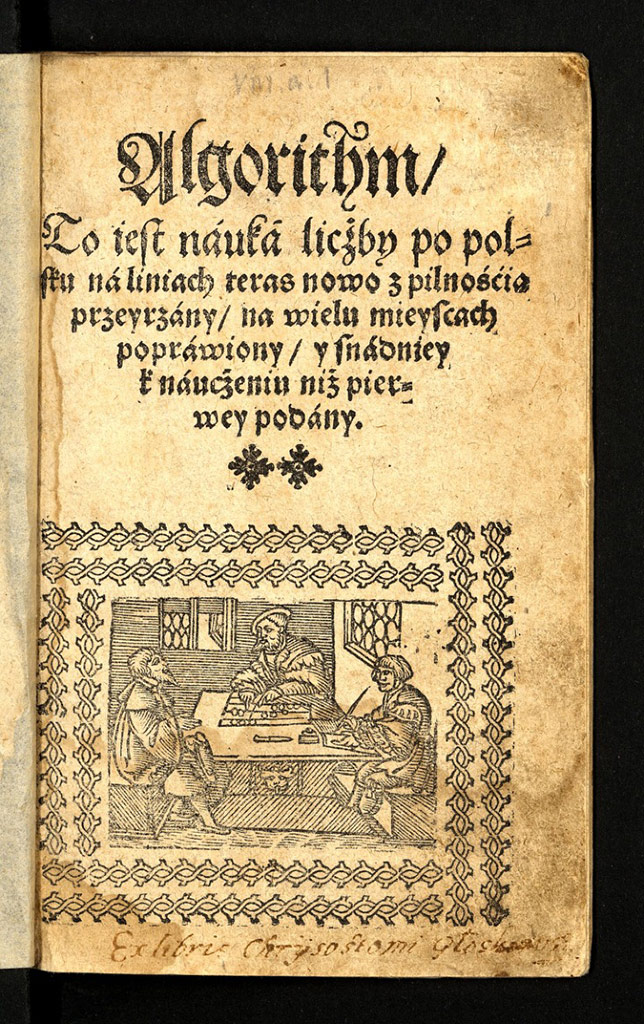 Algorithm/
To iest náuká licżby po pol=
sku ná liniach teras nowo z pilnośćią
przeyrzány/ na wielu mieyscach
popráwiony/ y snádniey
k náucżeniu niż pier=
wey podány.
Ex libris Chrysostomi